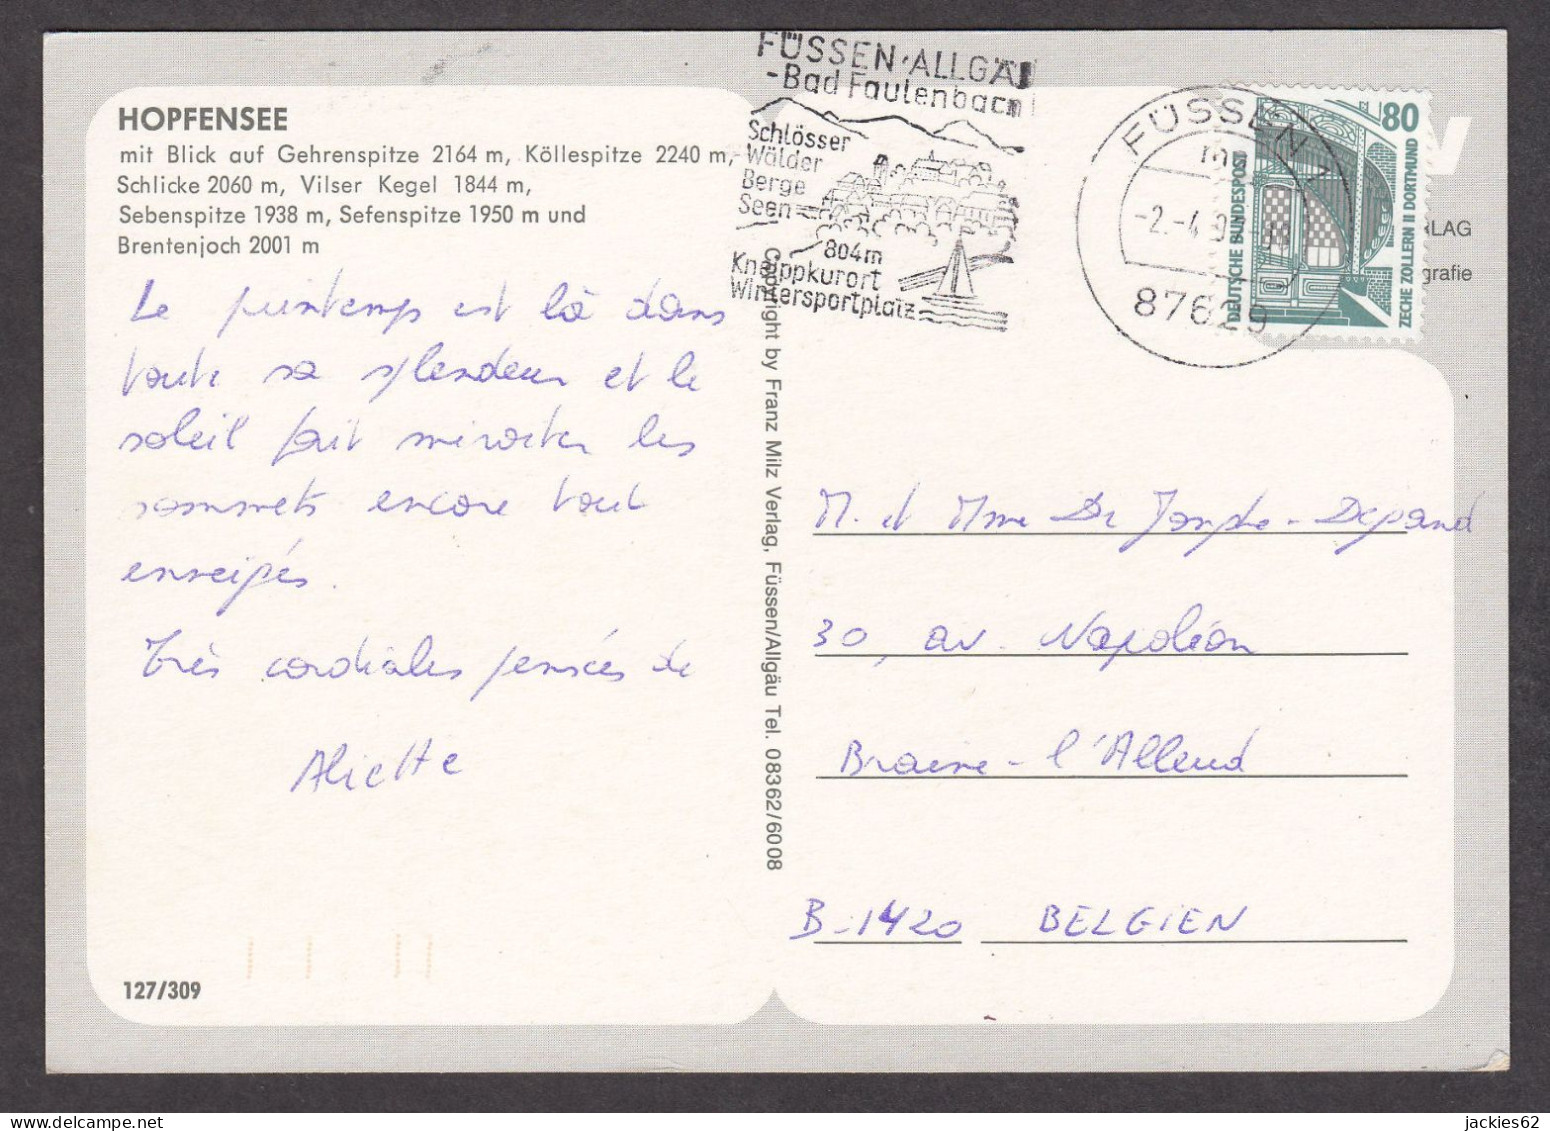 HOPFENSEE
mit Blick auf Gehrenspitze 2164 m, Köllespitze 2240 m,
Schlicke 2060 m, Vilser Kegel 1844 m,
Sebenspitze 1938 m, Sefenspitze 1950 m und
Brentenjoch 2001 m
Le printemps est là dans
toute sa splendeur et le
soleil fait miroiter les
sommets encore tout
enneigés.
Très cordiales pensées de
Aliette
127/309
Copyright by Franz Milz Verlag, Füssen/Allgäu Tel. 08362/6008
FÜSSEN·ALLGÄU
-Bad Faulenbach
Schlösser
Wälder
Berge
Seen
804m
Kneippkurort
Wintersportplatz
FÜSSEN 1
-2.-4.9
87629
80
DEUTSCHE BUNDESPOST
ZECHE ZOLLERN II DORTMUND
RLAG
grafie
M. et Mme De - Depand
30, av. Napoléon
Braine-l'Alleud
B-1420 BELGIEN
jackies62